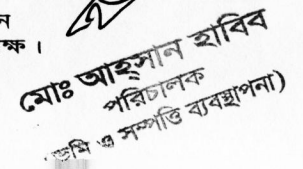 ন
ক্ষ ।
মোঃ আহ্সান হাবিব
পরিচালক
ভূমি ও সম্পত্তি ব্যবস্থাপনা)